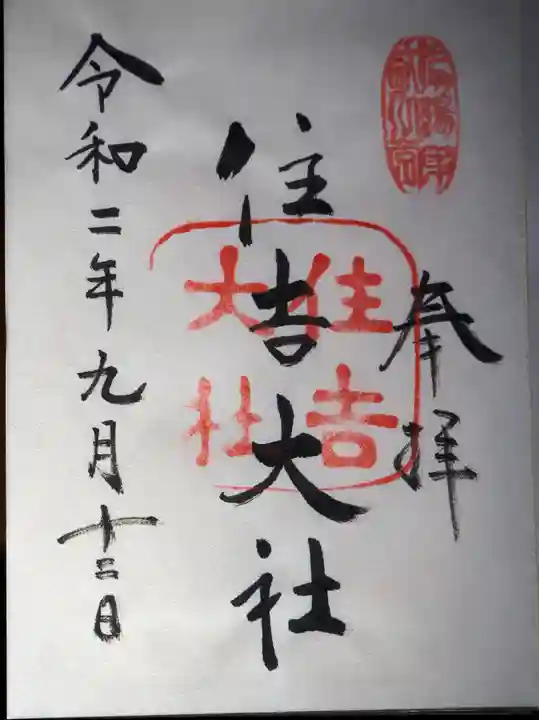 奉拝
住吉大社
住吉
大社
令和二年九月十二日